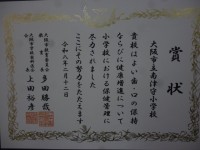 賞状
大阪市立南津守小学校
貴校はよい歯・口の保持
ならびに健康増進について
小学校における保健管理に
尽力されました
ここにその努力をたたえます
令和八年二月十二日
大阪市教育委員会
多田勝哉
上田裕彦